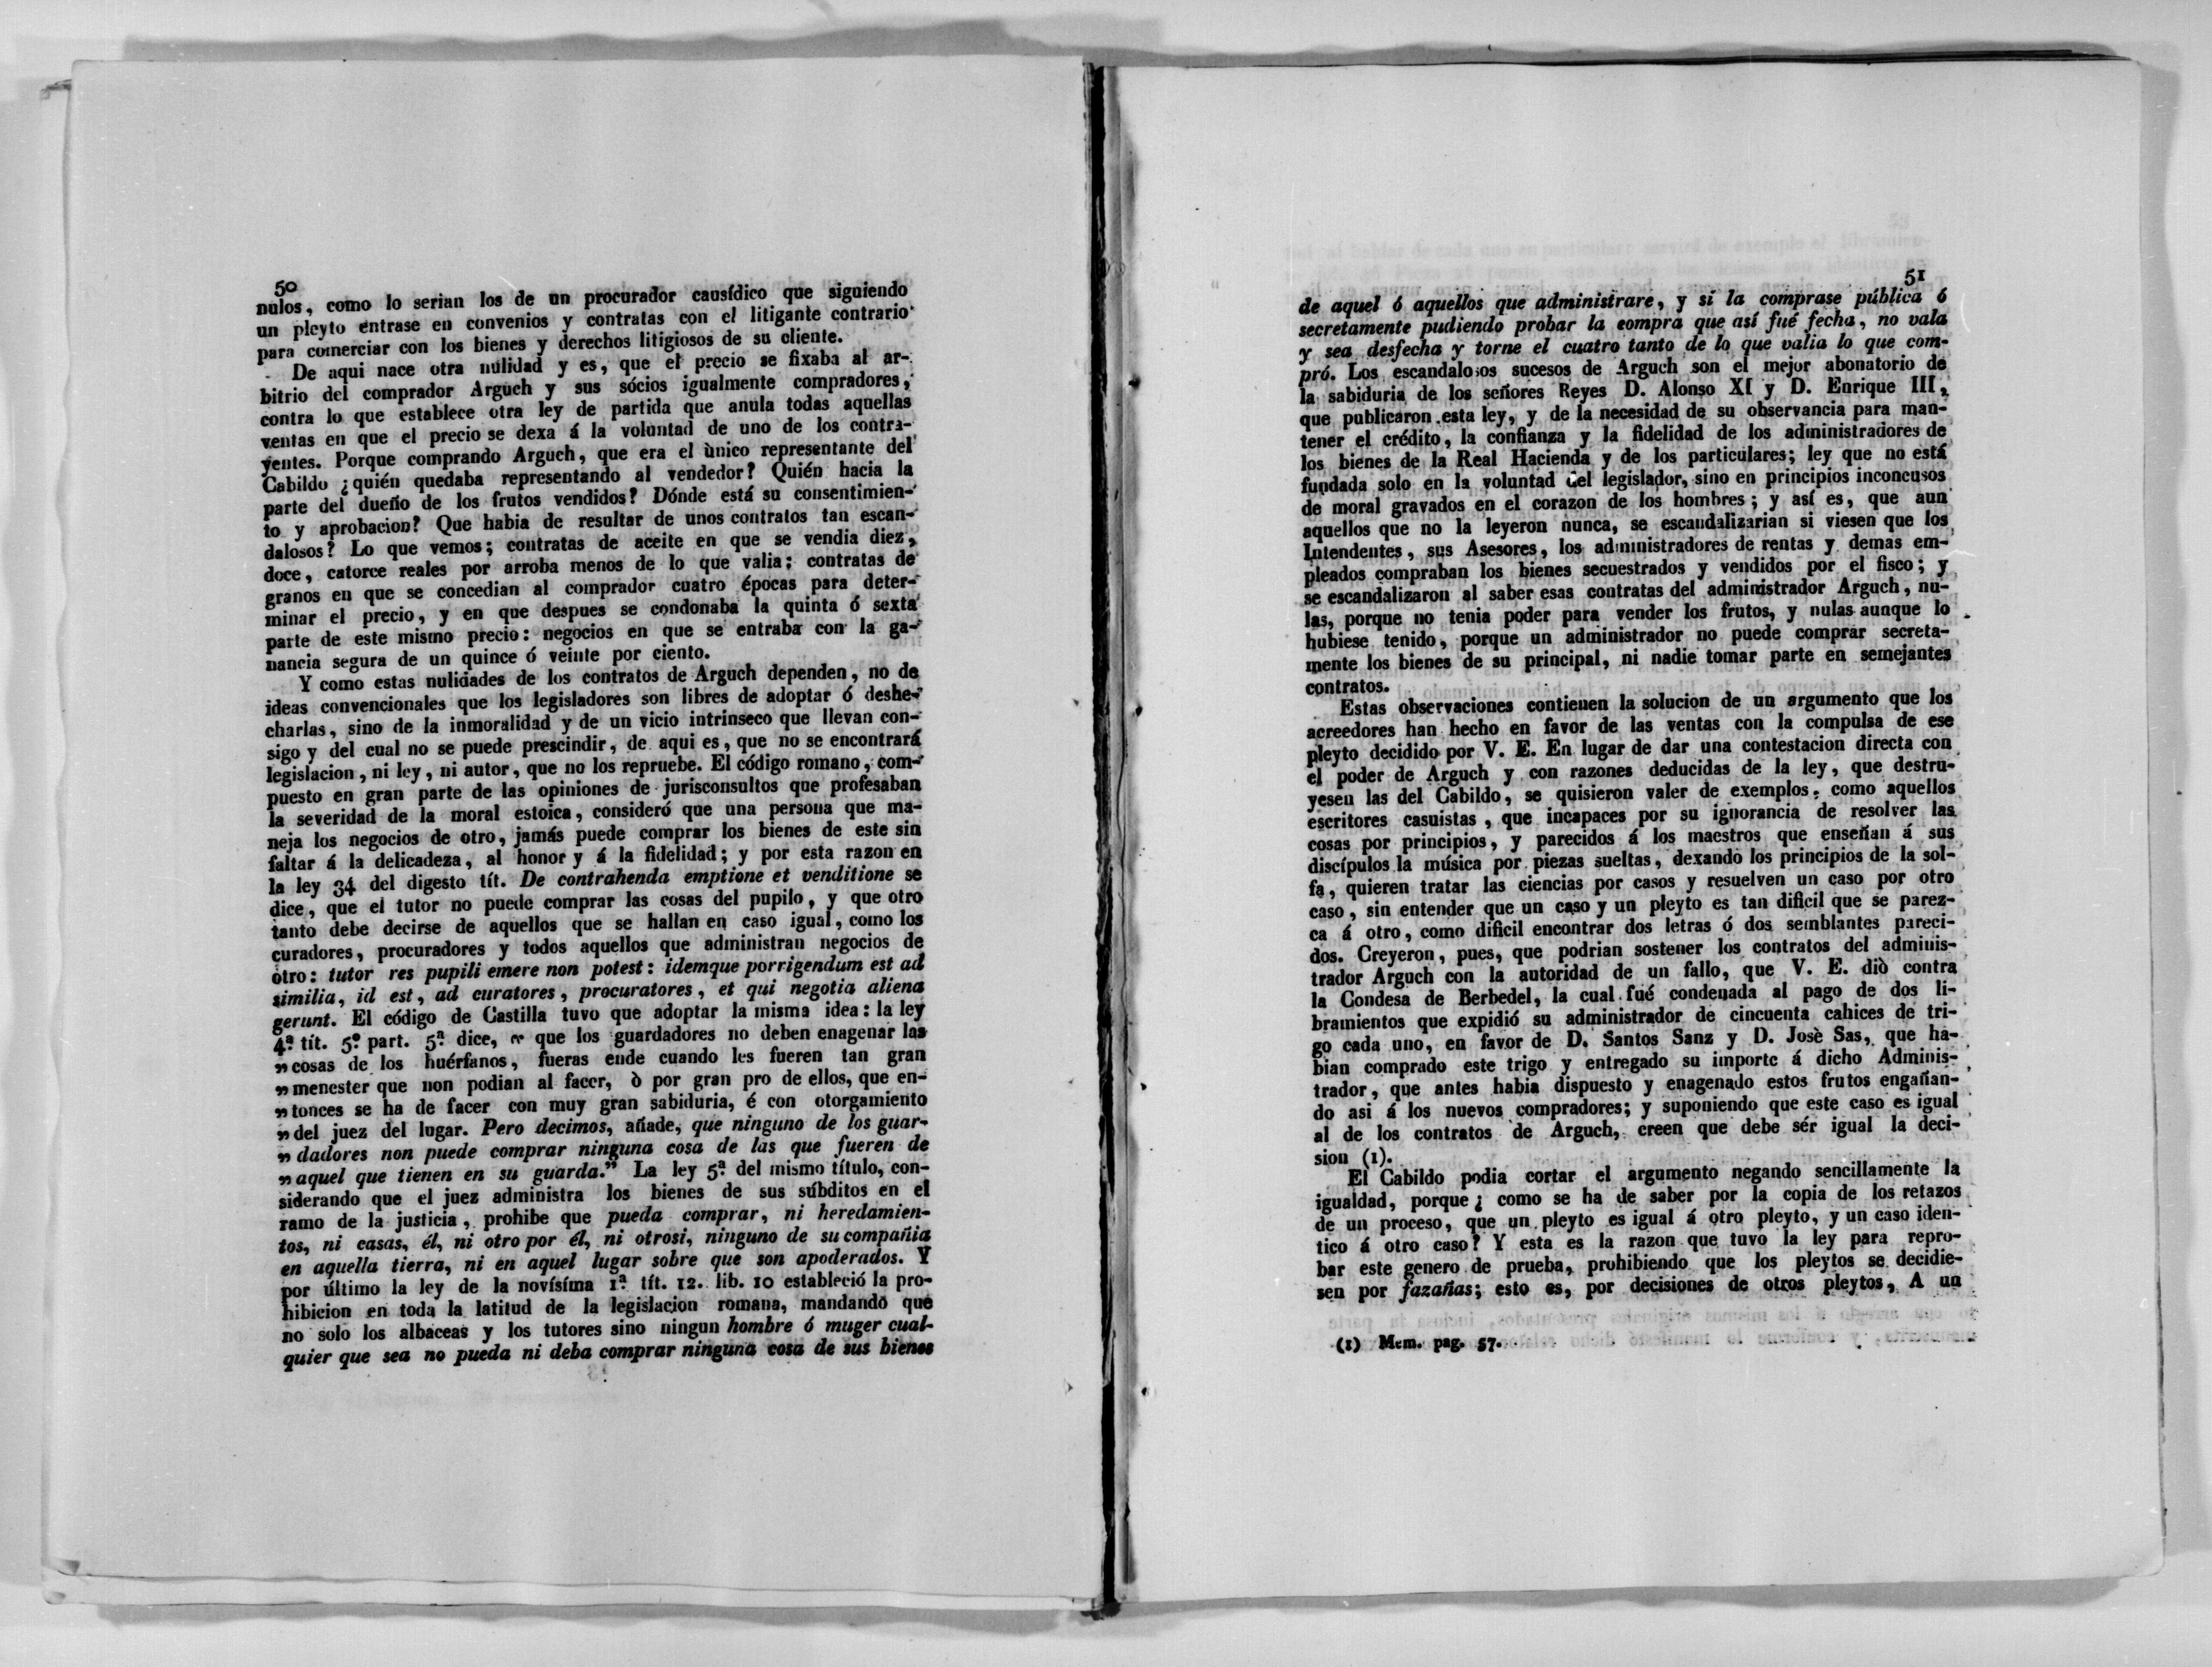 50
nulos, como lo serian los de un procurador causídico que siguiendo
un pleyto entrase en convenios y contratas con el litigante contrario
para comerciar con los bienes y derechos litigiosos de su cliente.
De aqui nace otra nulidad y es, que el precio se fixaba al ar-
bitrio del comprador Arguch y sus sócios igualmente compradores,
contra lo que establece otra ley de partida que anula todas aquellas
ventas en que el precio se dexa á la voluntad de uno de los contra-
yentes. Porque comprando Arguch, que era el ùnico representante del
Cabildo ¿quién quedaba representando al vendedor? Quién hacia la
parte del dueño de los frutos vendidos? Dónde está su consentimien-
to y aprobacion? Que habia de resultar de unos contratos tan escan-
dalosos? Lo que vemos; contratas de aceite en que se vendia diez,
doce, catorce reales por arroba menos de lo que valia: contratas de
granos en que se concedian al comprador cuatro épocas para deter-
minar el precio, y en que despues se condonaba la quinta ó sexta
parte de este mismo precio: negocios en que se entraba con la ga-
nancia segura de un quince ó veinte por ciento.
Y como estas nulidades de los contratos de Arguch dependen, no de
ideas convencionales que los legisladores son libres de adoptar ó deshe-
charlas, sino de la inmoralidad y de un vicio intrinseco que llevan con-
sigo y del cual no se puede prescindir, de aqui es, que no se encontrará
legislacion, ni ley, ni autor, que no los repruebe. El código romano, com-
puesto en gran parte de las opiniones de jurisconsultos que profesaban
la severidad de la moral estoica, consideró que una persona que ma-
neja los negocios de otro, jamás puede comprar los bienes de este sin
faltar á la delicadeza, al honor y á la fidelidad; y por esta razon en
la ley 34 del digesto tít. De contrahenda emptione et venditione se
dice, que el tutor no puede comprar las cosas del pupilo, y que otro
tanto debe decirse de aquellos que se hallan en caso igual, como los
curadores, procuradores y todos aquellos que administran negocios de
otro: tutor res pupili emere non potest: idemque porrigendum est ad
similia, id est, ad curatores, procuratores, et qui negotia aliena
gerunt. El código de Castilla tuvo que adoptar la misma idea: la ley
4.ª tít. 5.º part. 5.ª dice, « que los guardadores no deben enagenar las
„cosas de los huérfanos, fueras ende cuando les fueren tan gran
„menester que non podian al facer, ò por gran pro de ellos, que en-
„tonces se ha de facer con muy gran sabiduria, é con otorgamiento
„del juez del lugar. Pero decimos, añade, que ninguno de los guar-
„dadores non puede comprar ninguna cosa de las que fueren de
„aquel que tienen en su guarda.” La ley 5.ª del mismo título, con-
siderando que el juez administra los bienes de sus súbditos en el
ramo de la justicia, prohibe que pueda comprar, ni heredamien-
tos, ni casas, él, ni otro por él, ni otrosi, ninguno de su compañia
en aquella tierra, ni en aquel lugar sobre que son apoderados. Y
por último la ley de la novísíma 1.ª tít. 12. lib. 10 estableció la pro-
hibicion en toda la latitud de la legislacion romana, mandando que
no solo los albaceas y los tutores sino ningun hombre ó muger cual-
quier que sea no pueda ni deba comprar ninguna cosa de sus bienes
51
de aquel ó aquellos que administrare, y si la comprase pública ó
secretamente pudiendo probar la compra que así fué fecha, no vala
y sea desfecha y torne el cuatro tanto de lo que valia lo que com-
pró. Los escandalosos sucesos de Arguch son el mejor abonatorio de
la sabiduria de los señores Reyes D. Alonso XI y D. Enrique III,
que publicaron esta ley, y de la necesidad de su observancia para man-
tener el crédito, la confianza y la fidelidad de los administradores de
los bienes de la Real Hacienda y de los particulares; ley que no está
fundada solo en la voluntad del legislador, sino en principios inconcusos
de moral gravados en el corazon de los hombres; y así es, que aun
aquellos que no la leyeron nunca, se escandalizarian si viesen que los
Intendentes, sus Asesores, los administradores de rentas y demas em-
pleados compraban los bienes secuestrados y vendidos por el fisco; y
se escandalizaron al saber esas contratas del administrador Arguch, nu-
las, porque no tenia poder para vender los frutos, y nulas aunque lo
hubiese tenido, porque un administrador no puede comprar secreta-
mente los bienes de su principal, ni nadie tomar parte en semejantes
contratos.
Estas observaciones contienen la solucion de un argumento que los
acreedores han hecho en favor de las ventas con la compulsa de ese
pleyto decidido por V. E. En lugar de dar una contestacion directa con
el poder de Arguch y con razones deducidas de la ley, que destru-
yesen las del Cabildo, se quisieron valer de exemplos, como aquellos
escritores casuistas, que incapaces por su ignorancia de resolver las
cosas por principios, y parecidos á los maestros que enseñan á sus
discípulos la música por piezas sueltas, dexando los principios de la sol-
fa, quieren tratar las ciencias por casos y resuelven un caso por otro
caso, sin entender que un caso y un pleyto es tan dificil que se parez-
ca á otro, como dificil encontrar dos letras ó dos semblantes pareci-
dos. Creyeron, pues, que podrian sostener los contratos del adminis-
trador Arguch con la autoridad de un fallo, que V. E. diò contra
la Condesa de Berbedel, la cual fué condenada al pago de dos li-
bramientos que expidió su administrador de cincuenta cahices de tri-
go cada uno, en favor de D. Santos Sanz y D. Josè Sas, que ha-
bian comprado este trigo y entregado su importe á dicho Adminis-
trador, que antes habia dispuesto y enagenado estos frutos engañan-
do asi á los nuevos compradores; y suponiendo que este caso es igual
al de los contratos de Arguch, creen que debe sér igual la deci-
sion (1).
El Cabildo podia cortar el argumento negando sencillamente la
igualdad, porque ¿ como se ha de saber por la copia de los retazos
de un proceso, que un pleyto es igual á otro pleyto, y un caso iden-
tico á otro caso? Y esta es la razon que tuvo la ley para repro-
bar este genero de prueba, prohibiendo que los pleytos se decidie-
sen por fazañas; esto es, por decisiones de otros pleytos, A un
(1) Mem. pag. 57.